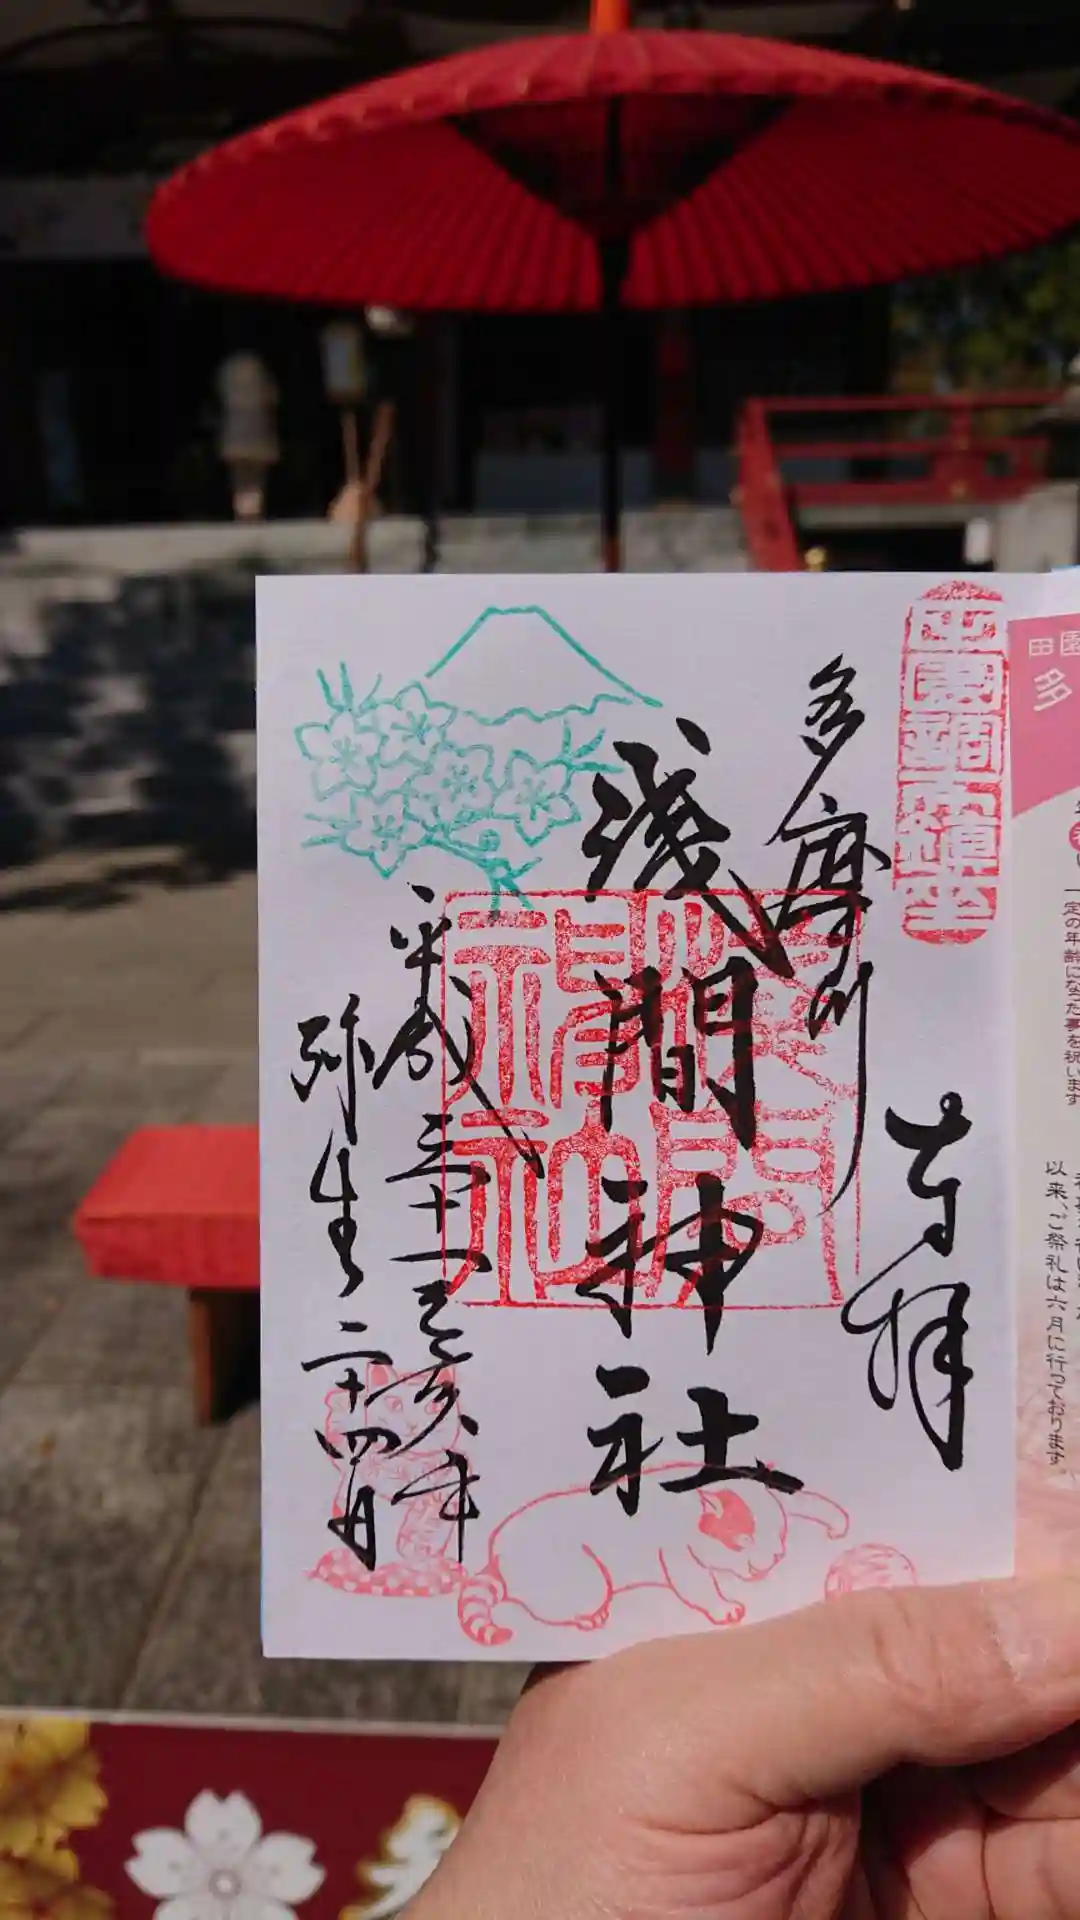 田園調布鎮座
奉拝
多摩川
浅間神社
平成三十一己亥年
弥生二十四日
浅間神社
田園
多
一定の年齢になった事を祝います
以来、ご祭礼は六月に行っております